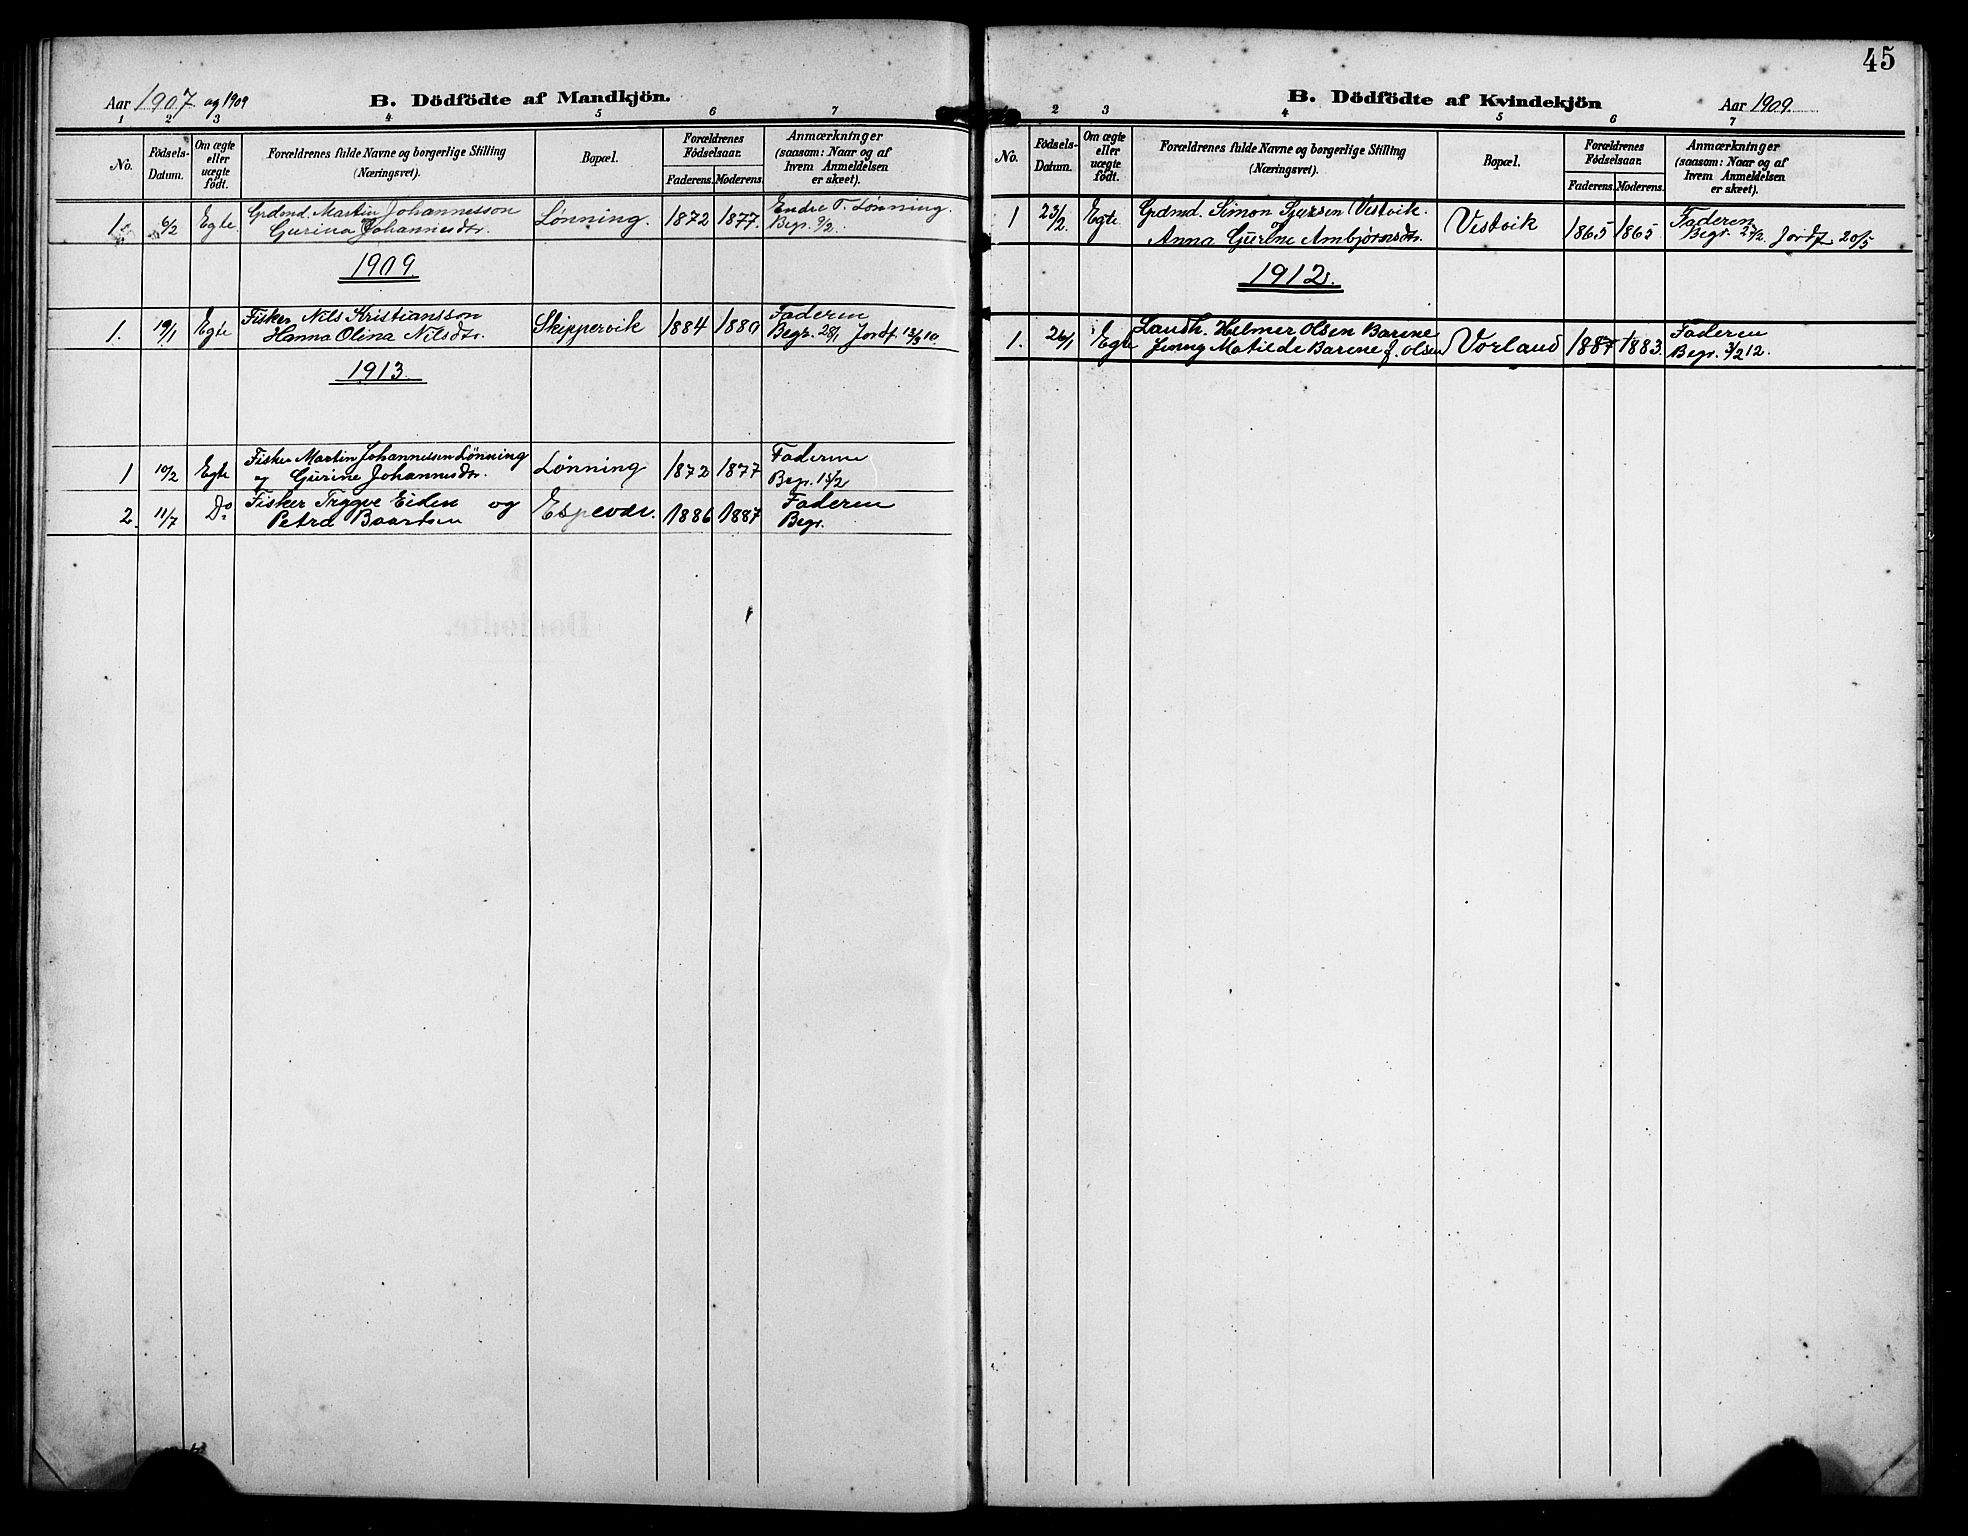 Aar 1907 og 1909
B. Dödfödte af Mandkjön.
1 2 3 4 5 6 7
No.
Födsels-
Datum.
Om ægte
eller
uægte
födt.
Forældrenes fulde Navne og borgerlige Stilling
(Næringsvei).
Bopæl.
Forældrenes
Födselsaar.
Faderens. Moderens.
Anmærkninger
(saasom: Naar og af
hvem Anmeldelsen
er skeet).
1. 6/2 Egte Grdmd. Martin Johannesson Lønning. 1872 1877. Endre T. Lønning.
Gurina Johannesdtr. Begr. 9/2.
1909
1. 19/1 Egte Fisker Nils Kristiansson Skippervik 1884 1880 Faderen
Hanna Olina Nilsdtr. Begr. 28/1 Jordf. 13/3 10.
1913
1 10/2 Egte Fisker Martin Johannessen Lønning Lønning 1872 1877 Faderen
og Gurine Johannesdtr. Begr. 15/2
2 11/7 Do Fisker Trygve Eiden og Espevær. 1886 1887 Faderen
Petra Baartsen Begr.
45
B. Dödfödte af Kvindekjön
Aar 1909.
2 3 4 5 6 7
No.
Födsels-
Datum.
Om ægte
eller
uægte
födt.
Forældrenes fulde Navne og borgerlige Stilling
(Næringsvei).
Bopæl.
Forældrenes
Födselsaar.
Faderens. Moderens.
Anmærkninger
(saasom: Naar og af
hvem Anmeldelsen
er skeet).
1 23/2. Egte. Grdmd. Simon Sjursen Vestvik. Vestvik 1865 1865 Faderen
og Anna Gurine Ambjørnsdtr. Begr. 27/2. Jordf. 20/5
1912.
1. 26/1 Egte Landh. Hilmer Olsen Barene Vorland 1887 1883. Faderen
Jenny Matilde Barene f. Olsen Begr. 3/2 12.